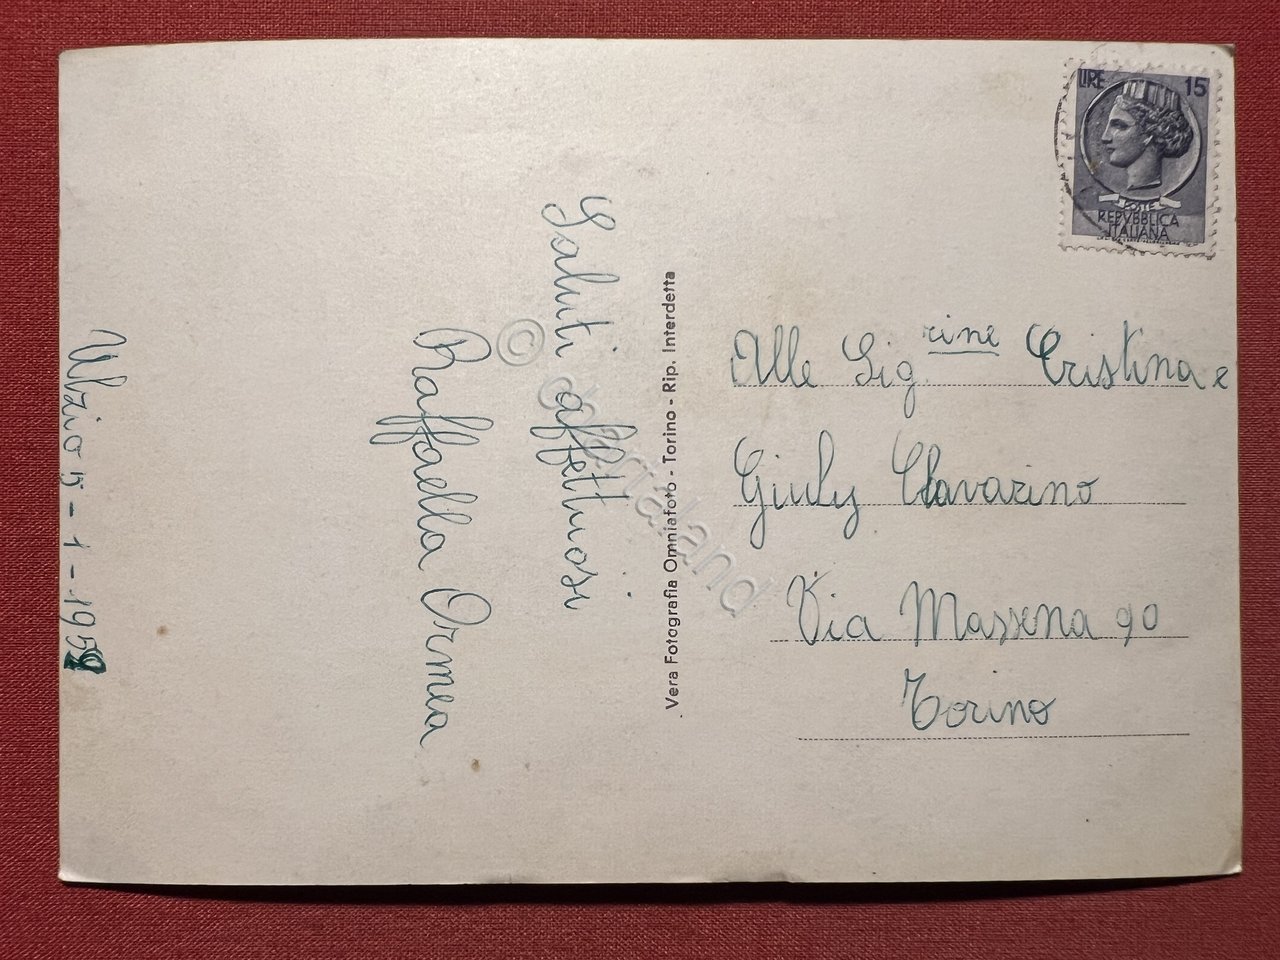 Ulzio 5-1-1959
Saluti affettuosi
Raffaella Ormea
Vera Fotografia Omniafoto - Torino - Rip. Interdetta
LIRE 15
POSTE
REPVBBLICA
ITALIANA
Alle Sig.rine Cristina e
Giuly Clavarino
Via Massena 90
Torino
© cartaland